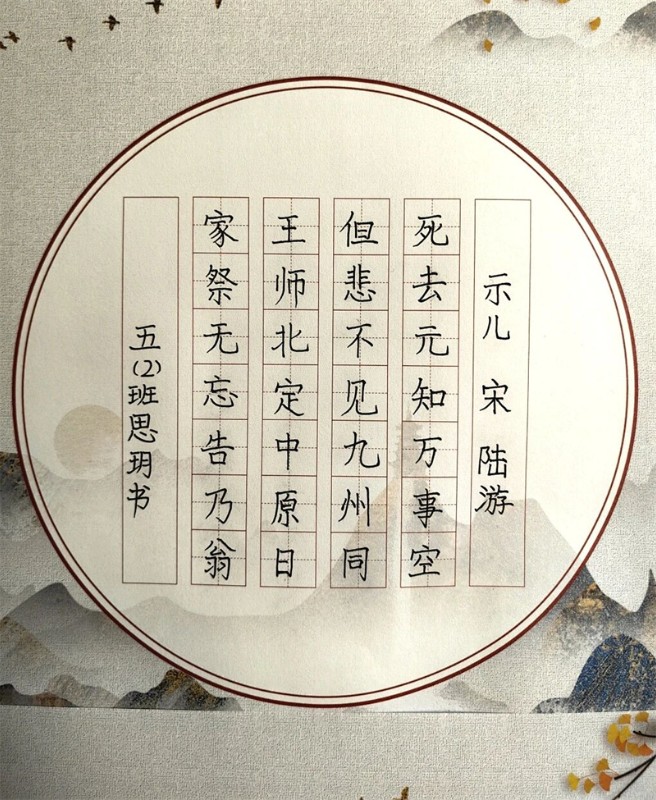 示儿 宋 陆游
死去元知万事空
但悲不见九州同
王师北定中原日
家祭无忘告乃翁
五(2)班思玥书